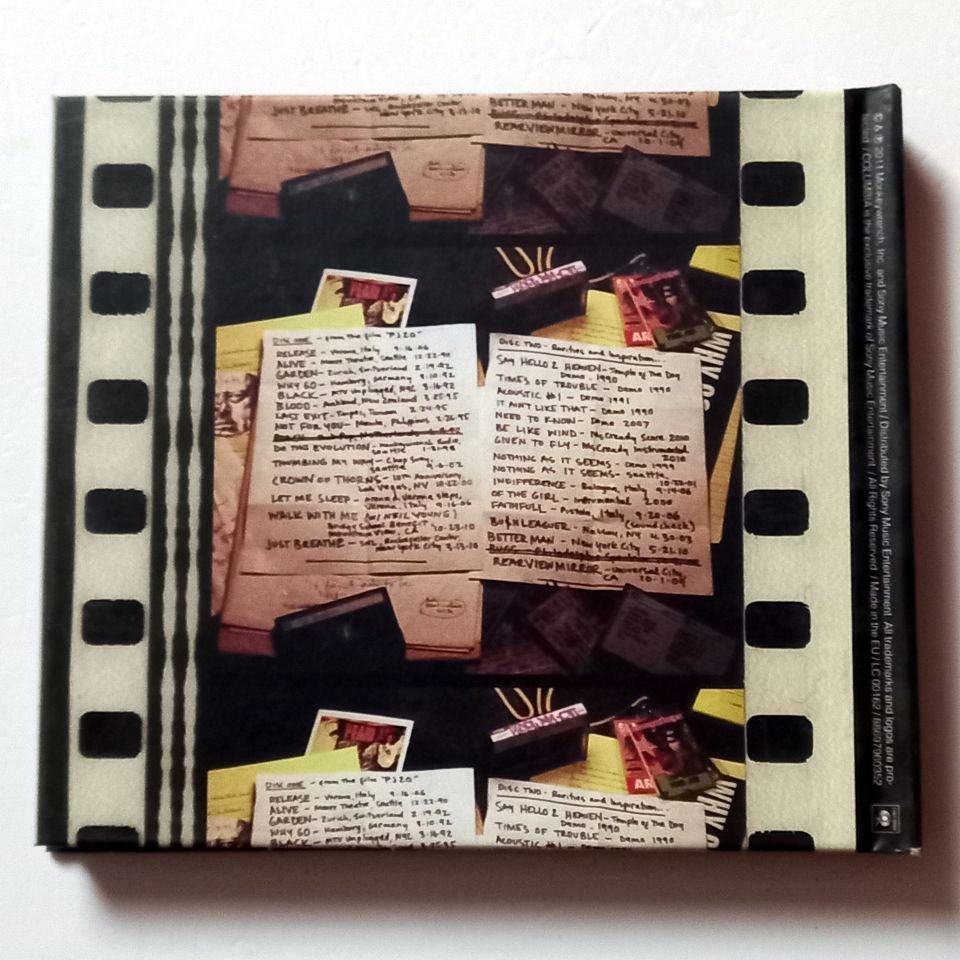 JUST BREATHE - SNL, Rockefeller Center,
New York City 3.13.10
BETTER MAN - New York City 5.21.10
REARVIEWMIRROR - Universal City,
CA 10.1.09
DISC ONE - from the film "PJ20"
RELEASE - Verona, Italy 9.16.06
ALIVE - Moore Theatre, Seattle 12.22.90
GARDEN - Zurich, Switzerland 2.19.92
WHY GO - Hamburg, Germany 3.10.92
BLACK - MTV Unplugged, NYC 3.16.92
BLOOD - Auckland, New Zealand 3.25.95
LAST EXIT - Taipei, Taiwan 2.24.95
NOT FOR YOU - Manila, Philippines 2.26.95
DO THE EVOLUTION - Monkeywrench Radio,
Seattle 1.31.98
THUMBING MY WAY - Chop Suey,
Seattle 9.6.02
CROWN OF THORNS - 10th Anniversary
Las Vegas, NV 10.22.00
LET ME SLEEP - Arena di Verona steps,
Verona, Italy 9.16.06
WALK WITH ME (w/ NEIL YOUNG)
Bridge School Benefit
Mountain View, CA 10.23.10
JUST BREATHE - SNL, Rockefeller Center,
New York City 3.13.10
DISC TWO - Rarities and Inspiration...
SAY HELLO 2 HEAVEN - Temple of the Dog
Demo, 1990
TIMES OF TROUBLE - Demo 1990
ACOUSTIC #1 - Demo 1991
IT AIN'T LIKE THAT - Demo 1990
NEED TO KNOW - Demo 2007
BE LIKE WIND - McCready Score 2010
GIVEN TO FLY - McCready Instrumental
2010
NOTHING AS IT SEEMS - Demo 1999
NOTHING AS IT SEEMS - Seattle,
10.22.01
INDIFFERENCE - Bologna, Italy 9.14.06
OF THE GIRL - Instrumental 2000
FAITHFULL - Pistoia, Italy 9.20.06
(soundcheck)
BU$HLEAGUER - Uniondale, NY 4.30.03
BETTER MAN - New York City 5.21.10
REARVIEWMIRROR - Universal City,
CA 10.1.09
AR
WHY GO
DISC ONE - from the film "PJ20"
RELEASE - Verona, Italy 9.16.06
ALIVE - Moore Theatre, Seattle 12.22.90
GARDEN - Zurich, Switzerland 2.19.92
WHY GO - Hamburg, Germany 3.10.92
BLACK - MTV Unplugged, NYC 3.16.92
DISC TWO - Rarities and Inspiration...
SAY HELLO 2 HEAVEN - Temple of the Dog
Demo, 1990
TIMES OF TROUBLE - Demo 1990
ACOUSTIC #1 - Demo 1991
AR
© & ℗ 2011 Monkeywrench, Inc. and Sony Music Entertainment / Distributed by Sony Music Entertainment. All trademarks and logos are pro-
tected. / COLUMBIA is the exclusive trademark of Sony Music Entertainment. / All Rights Reserved. / Made in the EU / LC 00162 / 88697960352